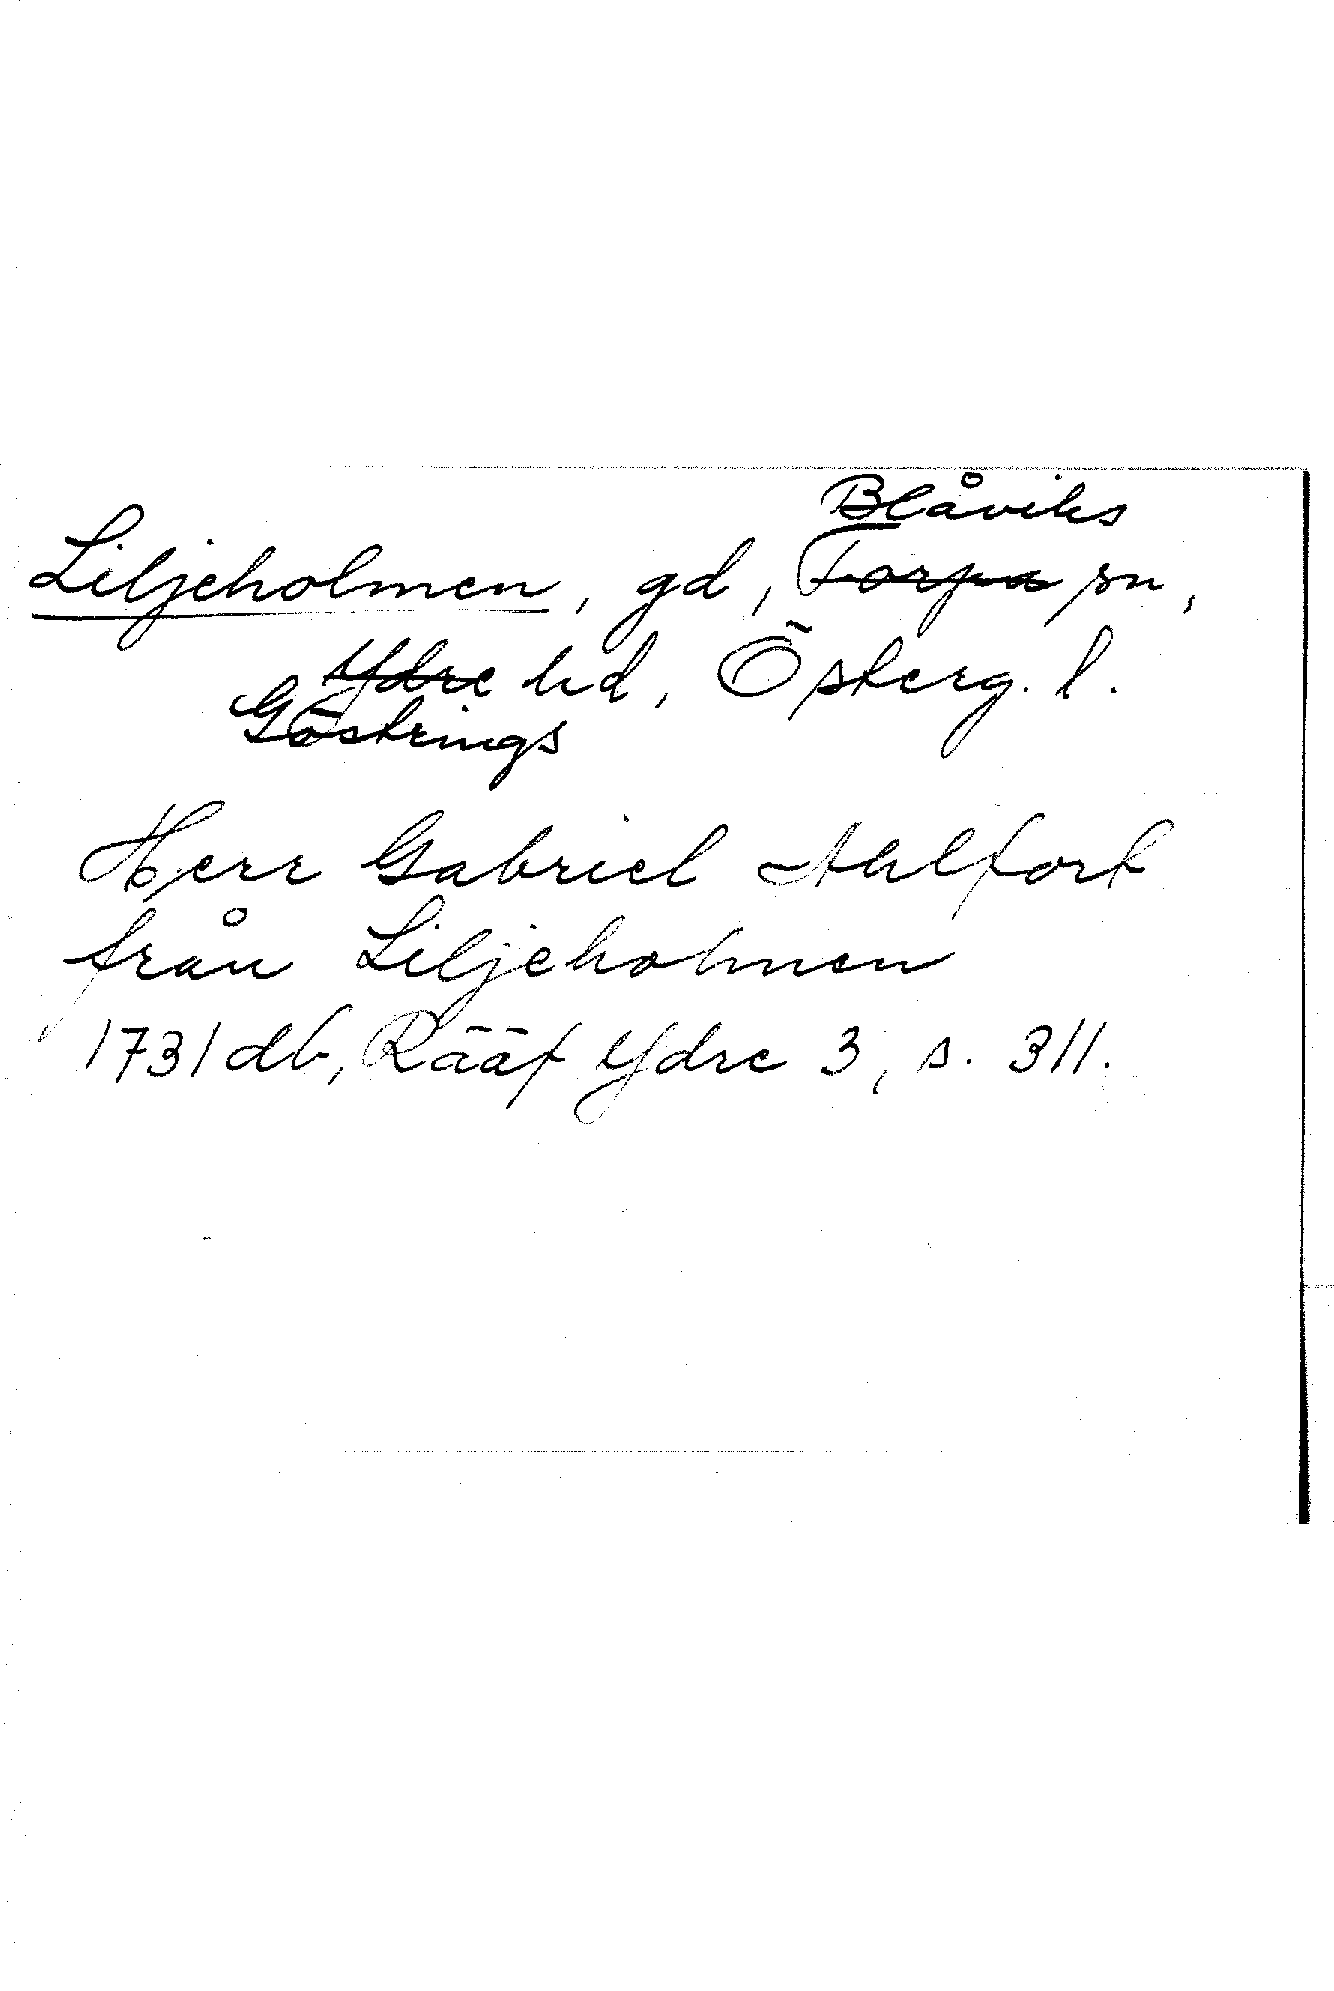 Blåviks
Liljeholmen, gd, Torpa sn,
Ydre hd, Österg. l.
Göstrings
Herr Gabriel Ahlfort
från Liljeholmen
1731 db, Rääf Ydre 3, s. 311.